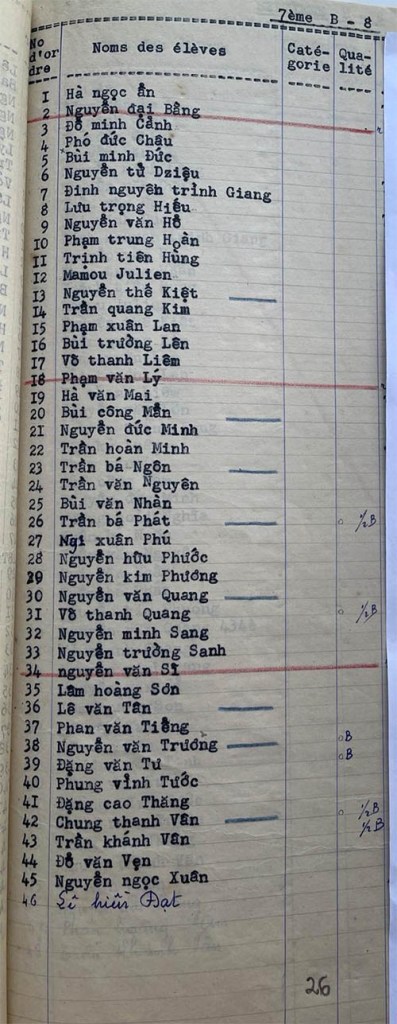 7ème B - 8
No d'or dre Noms des élèves Caté- gorie Qua- lité
1 Hà ngọc ẩn
2 Nguyễn đại Bằng
3 Đỗ minh Cảnh
4 Phó đức Châu
5 Bùi minh Đức
6 Nguyễn tử Dziệu
7 Đinh nguyên trinh Giang
8 Lưu trọng Hiếu
9 Nguyễn văn Hổ
10 Phạm trung Hoàn
11 Trinh tiên Hùng
12 Mamou Julien
13 Nguyễn thế Kiệt
14 Trần quang Kim
15 Phạm xuân Lan
16 Bùi trường Lên
17 Võ thanh Liêm
18 Phạm văn Lý
19 Hà văn Mai
20 Bùi công Mẫn
21 Nguyễn đức Minh
22 Trần hoàn Minh
23 Trần bá Ngôn
24 Trần văn Nguyên
25 Bùi văn Nhàn
26 Trần bá Phát ½B
27 Ngi xuân Phú
28 Nguyễn hữu Phước
29 Nguyễn kim Phương
30 Nguyễn văn Quang
31 Võ thanh Quang ½B
32 Nguyễn minh Sang
33 Nguyễn trường Sanh
34 nguyễn văn Sĩ
35 Lâm hoàng Sơn
36 Lê văn Tân
37 Phan văn Tiếng
38 Nguyễn văn Trương B
39 Đặng văn Tư B
40 Phung vĩnh Tước
41 Đặng cao Thăng
42 Chung thanh Vân ½B ½B
43 Trần khánh Vân
44 Đỗ văn Vẹn
45 Nguyễn ngọc Xuân
46 Lê hiền Đạt
26